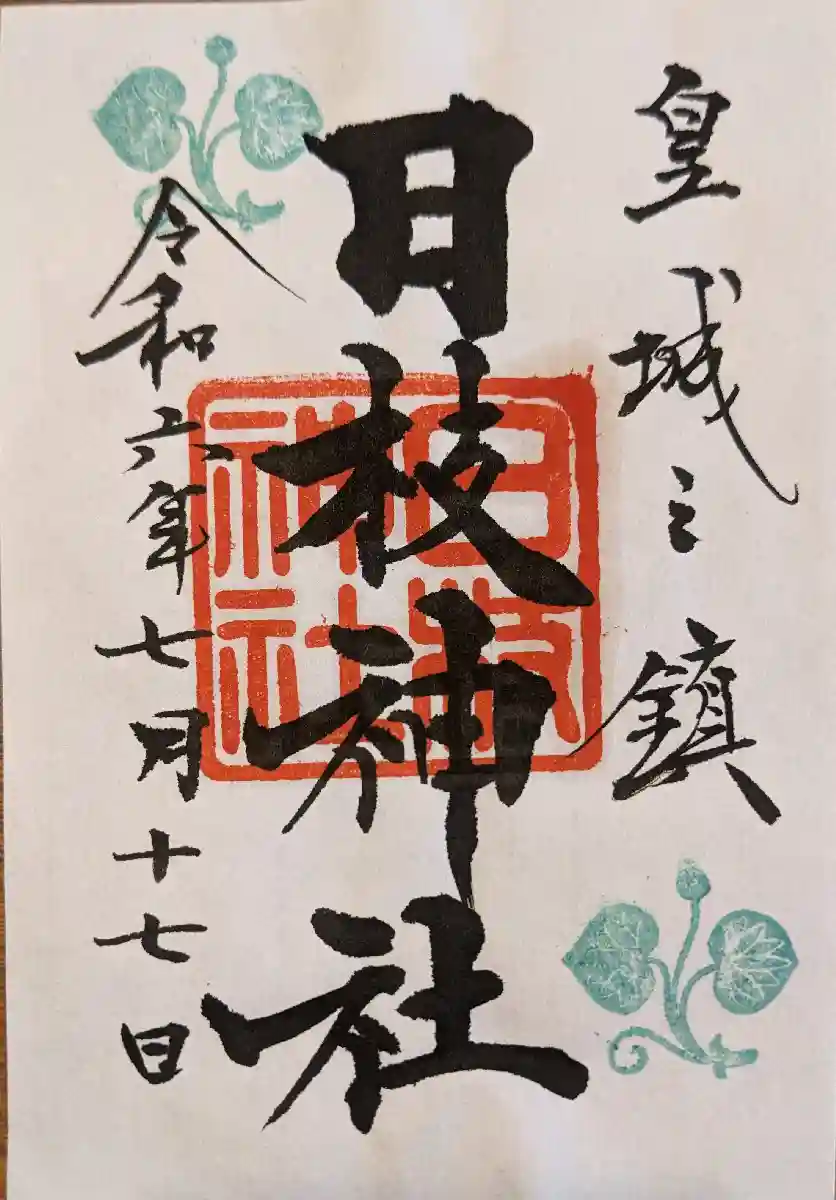 皇城之鎮
日枝神社
日枝神社
令和六年七月十七日